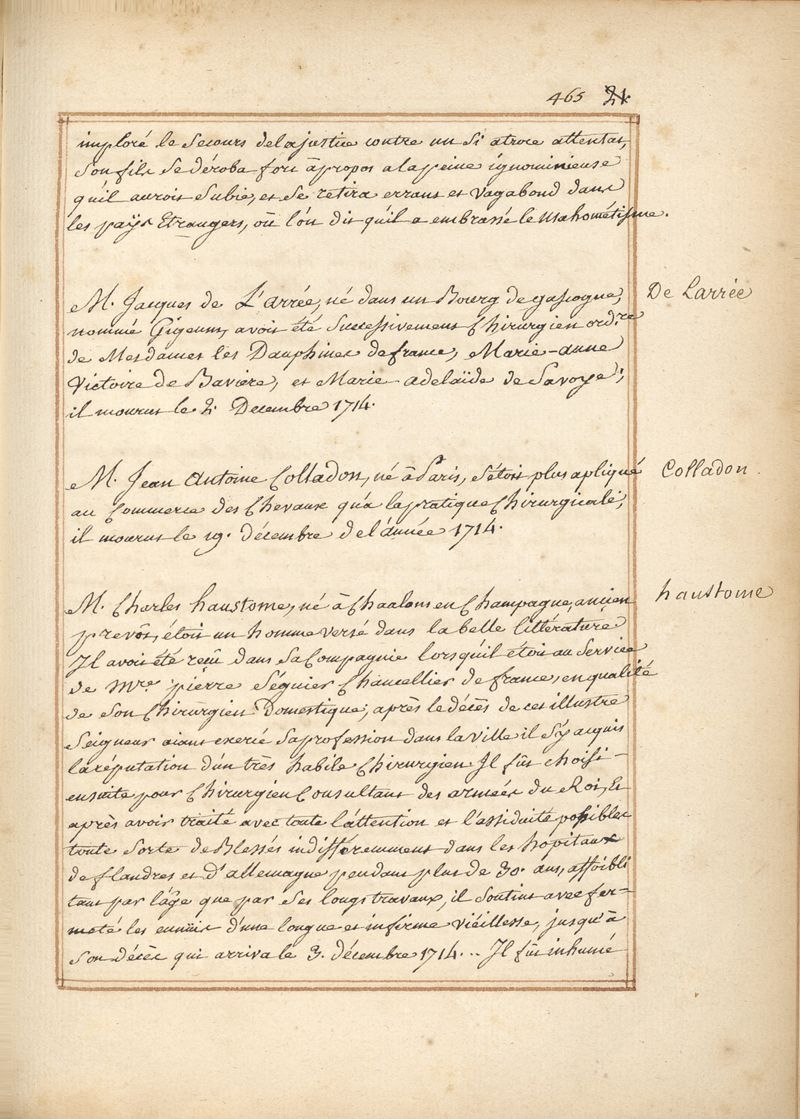 465 21
imploré le secours de la justice contre un si atroce attentat,
son fils se déroba fort à propos a la peine ignominieuse
qu'il auroit subie, et se retira errant et vagabond dans
les pays Etrangers, où l'on dit qu'il a embrassé le mahométisme.
De Larrée
M. Jacques de L'arrée, né dans un Bourg de gascogne,
nommé Gigeum, avoit été successivement Chirurgien ord.re
de Mesdames les Dauphines de france, Marie-anne
Victoire de Baviere, et Marie adelaïde de Savoye;
il mourut le 2. Decembre 1714.
Colladon.
M. Jean Antoine Colladon, né à Paris, s'étoit plus apliqué
au Commerce des Chevaux qu'a la pratique Chirurgicale;
il mourut le 19. décembre de l'année 1714.
haustome
M. Charles haustome, né à Chaalons en Champagne, ancien
prevôt, étoit un homme versé dans la belle littérature
Il avoit été reçû dans sa Compagnie lorsqu'il étoit au Service
de Mre. pierre Séguier Chancellier de france, en qualité
de son Chirurgien Domestique; après le décès de cet illustre
Seigneur aiant exercé sa profession dans la Ville il s'y acquis
la réputation d'un très habile Chirurgien Il fût choisi-
ensuite pour Chirurgien Consultant des armées du Roi, Et
après avoir traité avec toute l'attention et l'assiduité possibles
toute sorte de Blessés indifféremment dans les hopitaux
de flandres et d'allemagne pendant plus de 30. ans, affoibli
tant par l'âge que par ses longs travaux, il soutint avec fer-
meté les ennüis d'une longue et infirme vieillesse, jusqu'à
son décès qui arriva le 3. décembre 1714... Il fût inhumé